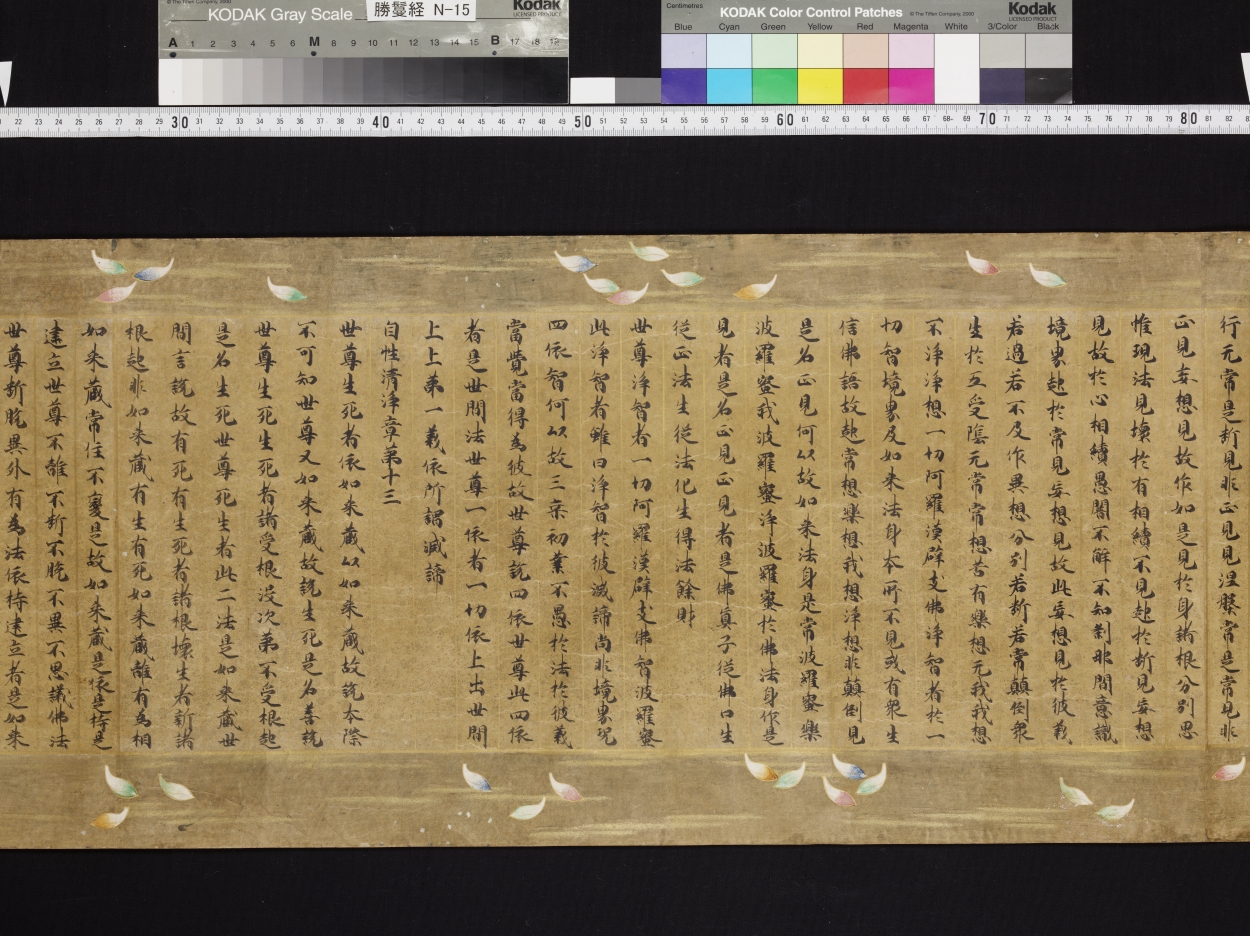 KODAK Gray Scale
勝鬘経 N-15
Kodak
LICENSED PRODUCT
© The Tiffen Company, 2000
A 1 2 3 4 5 6 M 8 9 10 11 12 13 14 15 B 17 18 19
Centimetres
KODAK Color Control Patches
© The Tiffen Company, 2000
Kodak
LICENSED PRODUCT
Blue Cyan Green Yellow Red Magenta White 3/Color Black
22 23 24 25 26 27 28 29 30 31 32 33 34 35 36 37 38 39 40 41 42 43 44 45 46 47 48 49 50 51 52 53 54 55 56 57 58 59 60 61 62 63 64 65 66 67 68 69 70 71 72 73 74 75 76 77 78 79 80 81 82
行无常是斷見非正見見涅槃常是常見非
正見妄想見故作如是見於身諸根分別思
惟現法見壞於有相續不見起於斷見妄想
見故於心相續愚闇不解不知剎那間意識
境界起於常見妄想見故此妄想見於彼義
若過若不及作異想分別若斷若常顛倒衆
生於五受陰无常常想苦有樂想无我我想
不淨淨想一切阿羅漢辟支佛淨智者於一
切智境界及如来法身本所不見或有衆生
信佛語故起常想樂想我想淨想非顛倒見
是名正見何以故如来法身是常波羅蜜樂
波羅蜜我波羅蜜淨波羅蜜於佛法身作是
見者是名正見正見者是佛真子從佛口生
從正法生從法化生得法餘財
世尊淨智者一切阿羅漢辟支佛智波羅蜜
此淨智者雖曰淨智於彼滅諦尚非境界况
四依智何以故三乗初業不愚於法於彼義
當覺當得為彼故世尊說四依世尊此四依
者是世間法世尊一依者一切依上出世間
上上第一義依所謂滅諦
自性清淨章第十三
世尊生死者依如来藏以如来藏故說本際
不可知世尊又如来藏故說生死是名善說
世尊生死生死者諸受根沒次第不受根起
是名生死世尊死生者此二法是如来藏世
間言說故有死有生死者諸根壞生者新諸
根起非如来藏有生有死如来藏離有為相
如来藏常住不變是故如来藏是依是持是
建立世尊不離不斷不脫不異不思議佛法
世尊斷脫異外有為法依持建立者是如来